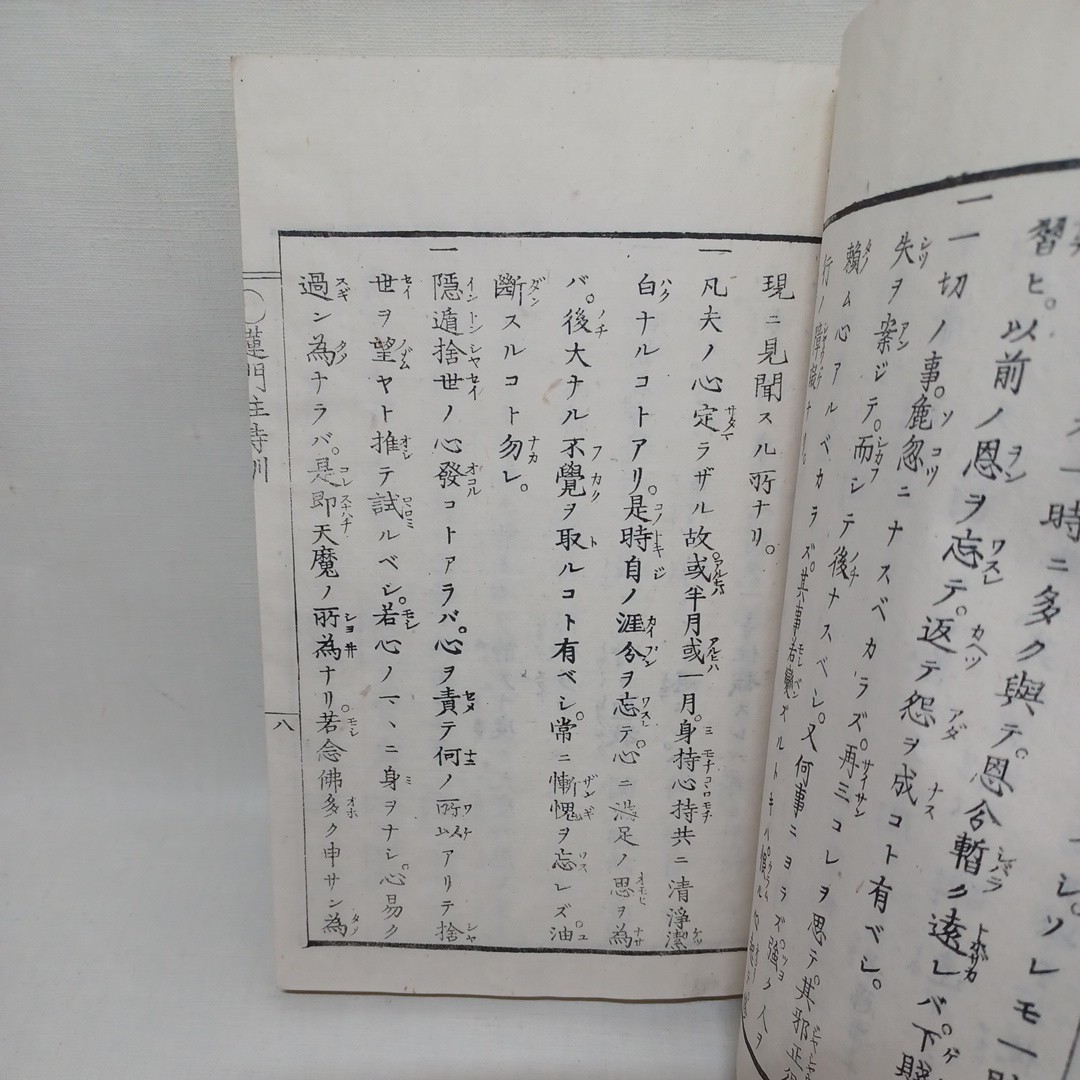 習ヒ。以前ノ恩ヲ忘テ。返テ怨ヲ成コト有ベシ。
一一切ノ事。麁忽ニナスベカラズ。再三コレヲ思テ。其邪正得
失ヲ案ジテ。而シテ後ナスベシ。又何事ニヨラズ
頼ム心アルベカラズ。其事若變ズルトキハ
現ニ見聞スル所ナリ。
一凡夫ノ心定ラザル故。或半月或一月。身持心持共ニ清淨潔
白ナルコトアリ。是時自ノ涯分ヲ忘テ。心ニ滿足ノ思ヲ為
バ。後大ナル不覺ヲ取ルコト有ベシ。常ニ慚愧ヲ忘レズ。油
斷スルコト勿レ。
一隱遁捨世ノ心發コトアラバ。心ヲ責テ何ノ所以アリテ捨
世ヲ望ヤト推テ試ルベシ。若心ノマヽニ身ヲナシ。心易ク
過ン為ナラバ。是即天魔ノ所為ナリ。若念佛多ク申サン為
蓮門住持訓
八